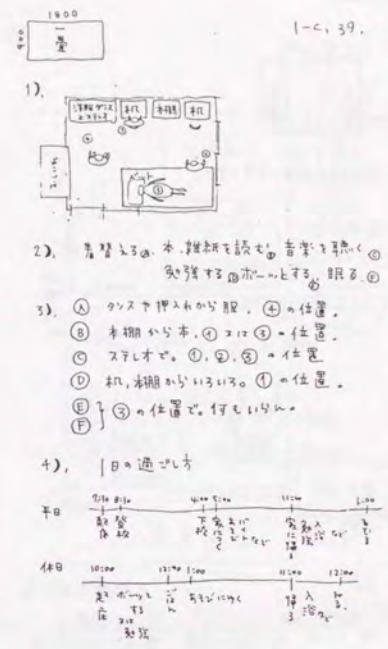 1800
900
一畳
1-C, 39.
1).
洋服ダンスとステレオ
机
本棚
机
おしいれ
ベット
2). 着替えるⒶ. 本, 雑紙を読むⒷ 音楽を聴くⒸ
勉強するⒹ ボーッとするⒺ 眠るⒻ
3). Ⓐ タンスや押入れから服. ④の位置.
Ⓑ 本棚から本. ①又は③の位置.
Ⓒ ステレオで. ①, ②, ③の位置
Ⓓ 机, 本棚からいろいろ. ①の位置.
Ⓔ Ⓕ } ③の位置で. 何もいらん.
4). 1日の過ごし方
平日
7:30 8:30 4:00 5:00 11:00 1:00
起床 登校 下校 家につく バイトなど 家に帰る 入浴 勉強 など ねる
休日
10:00 12:00 1:00 11:00 12:00
起床 ボーッとする又は勉強 ごはん あそびにゆく 帰る 入浴など ねる.